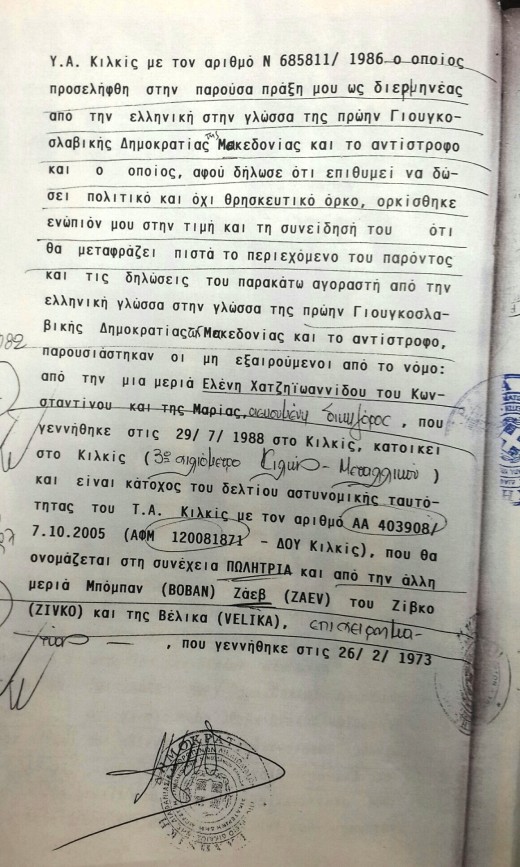 Υ.Α. Κιλκίς με τον αριθμό Ν 685811/ 1986 ο οποίος
προσελήφθη στην παρούσα πράξη μου ως διερμηνέας
από την ελληνική στην γλώσσα της πρώην Γιουγκο-
σλαβικής Δημοκρατίας της Μακεδονίας και το αντίστροφο
και ο οποίος, αφού δήλωσε ότι επιθυμεί να δώ-
σει πολιτικό και όχι θρησκευτικό όρκο, ορκίσθηκε
ενώπιόν μου στην τιμή και τη συνείδησή του ότι
θα μεταφράζει πιστά το περιεχόμενο του παρόντος
και τις δηλώσεις του παρακάτω αγοραστή από την
ελληνική γλώσσα στην γλώσσα της πρώην Γιουγκοσλα-
βικής Δημοκρατίας της Μακεδονίας και το αντίστροφο,
παρουσιάστηκαν οι μη εξαιρούμενοι από το νόμο:
από την μια μεριά Ελένη Χατζηϊωαννίδου του Κων-
σταντίνου και της Μαρίας, ασκουμένη δικηγόρος, που
γεννήθηκε στις 29/ 7/ 1988 στο Κιλκίς, κατοικεί
στο Κιλκίς (3ο χιλιόμετρο Κιλκίς - Μεταλλικού)
και είναι κάτοχος του δελτίου αστυνομικής ταυτό-
τητας του Τ.Α. Κιλκίς με τον αριθμό ΑΑ 403908/
7.10.2005 (ΑΦΜ 120081871 - ΔΟΥ Κιλκίς), που θα
ονομάζεται στη συνέχεια ΠΩΛΗΤΡΙΑ και από την άλλη
μεριά Μπόμπαν (BOBAN) Ζάεβ (ZAEV) του Ζίβκο
(ZIVKO) και της Βέλικα (VELIKA), επιχειρηματίας
, που γεννήθηκε στις 26/ 2/ 1973